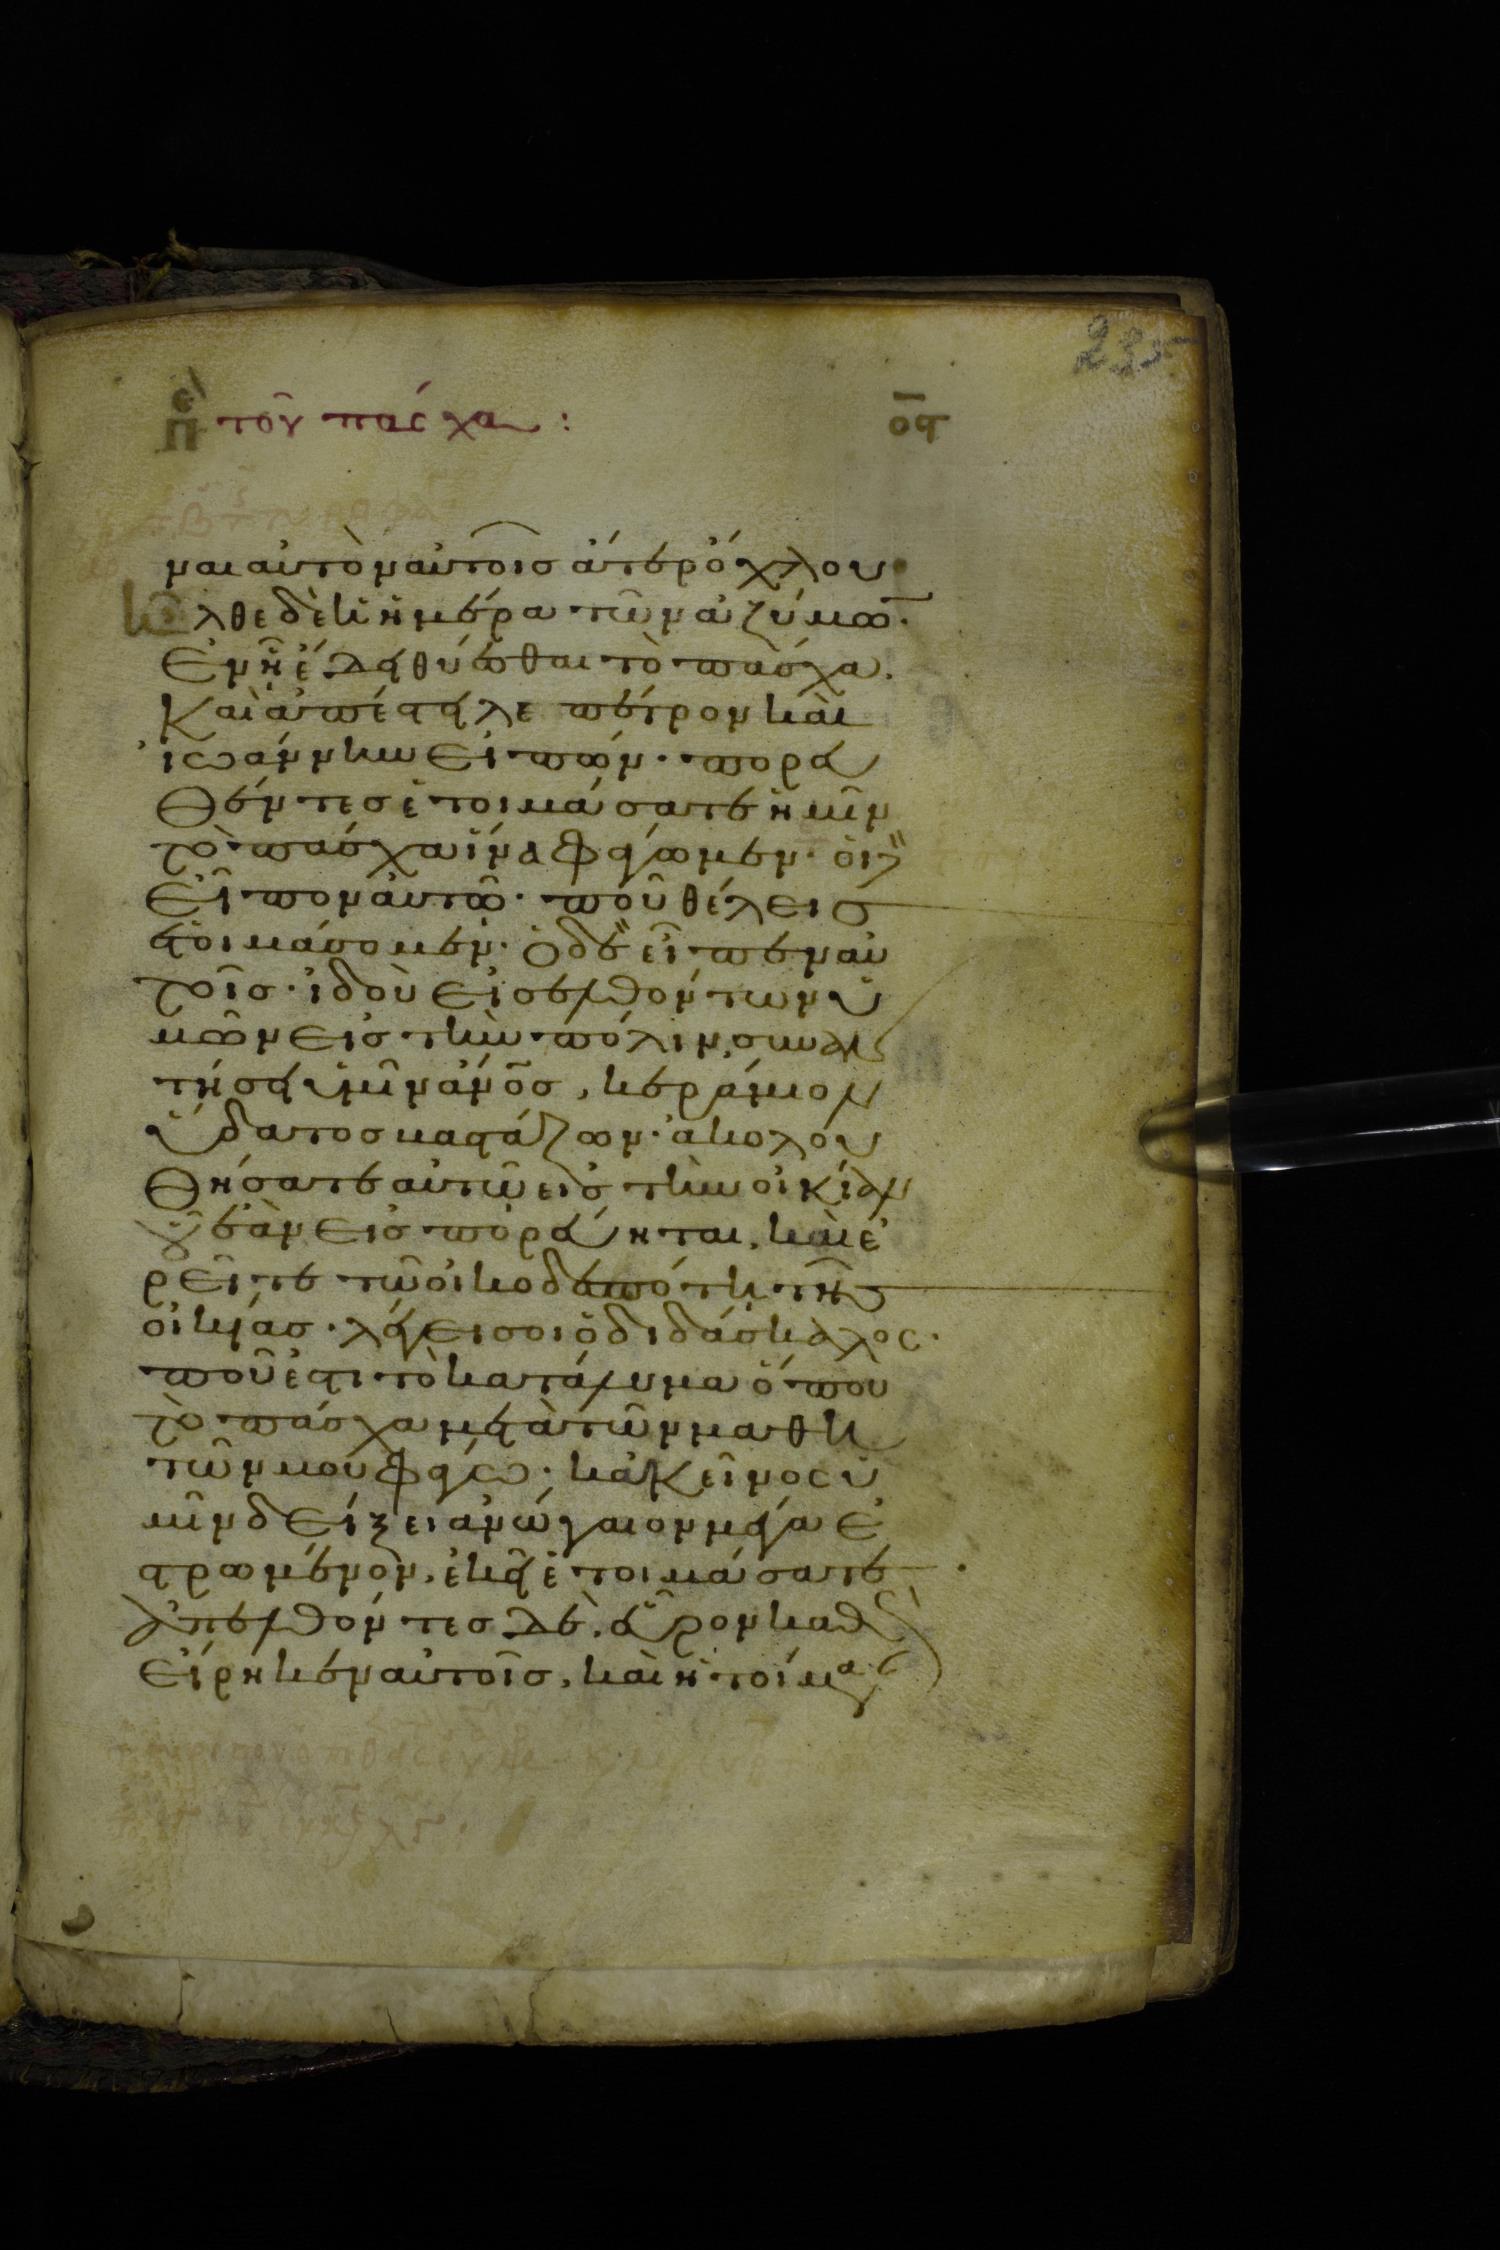 235
περὶ τοῦ πάσχα :
οϛ
ναι αὐτὸν αὐτοῖσ ἄτερ ὄχλου
ἦλθε δὲ ἡ ἡμέρα τῶν ἀζύμων.
Ἐν ᾗ ἔδει θύεσθαι τὸ πάσχα.
Καὶ ἀπέστειλε πέτρον καὶ
ἰωάννην εἰπών· πορευ
θέντεσ ἑτοιμάσατε ἡμῖν
τὸ πάσχα ἵνα φάγωμεν. οἱ δὲ
εἶπον αὐτῶ· ποῦ θέλεισ
ἑτοιμάσομεν. ὁ δὲ εἶπεν αὐ
τοῖσ· ἰδοὺ εἰσελθόντων ὑ
μῶν εἰσ τὴν πόλιν, συναν
τήσει ὑμῖν ἄνοσ, κεράμιον
ὕδατοσ βαστάζων. ἀκολου
θήσατε αὐτῶ εἰσ τὴν οἰκίαν
οὗ ἐὰν εἰσπορεύηται, καὶ ἐ
ρεῖτε τῶ οἰκοδεσπότη τῆσ
οἰκίασ. λέγει σοι ὁ διδάσκαλοσ.
ποῦ ἐστι τὸ κατάλυμα ὅπου
τὸ πάσχα μετὰ τῶν μαθη
τῶν μου φάγω. κἀκεῖνοσ ὑ
μῖν δείξει ἀνώγαιον μέγα ἐ
στρωμένον, ἐκεῖ ἑτοιμάσατε.
Ἀπελθόντεσ δὲ, εὗρον καθὼσ
εἴρηκεν αὐτοῖσ, καὶ ἡτοίμασ